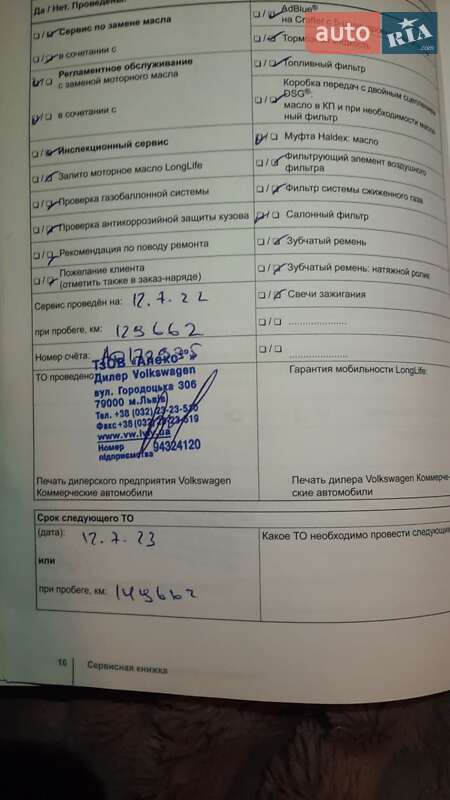 Да / Нет. Проведены:
Сервис по замене масла
в сочетании с
Регламентное обслуживание
с заменой моторного масла
в сочетании с
Инспекционный сервис
Залито моторное масло LongLife
Проверка газобаллонной системы
Проверка антикоррозийной защиты кузова
Рекомендация по поводу ремонта
Пожелание клиента
(отметить также в заказ-наряде)
Сервис проведён на: 12.7.22
при пробеге, км: 129662
Номер счёта:
ТО проведено:
ТЗОВ «Алеко»
Дилер Volkswagen
вул. Городоцька 306
79000 м.Львів
Тел. +38 (032)
Факс +38 (032)
www.vw.lviv.ua
Номер 94324120
підприємства
Печать дилерского предприятия Volkswagen
Коммерческие автомобили
AdBlue®
на Crafter с
Тормозная жидкость
Топливный фильтр
Коробка передач с двойным сцеплением
DSG®:
масло в КП и при необходимости масля
ный фильтр
Муфта Haldex: масло
Фильтрующий элемент воздушного
фильтра
Фильтр системы сжиженного газа
Салонный фильтр
Зубчатый ремень
Зубчатый ремень: натяжной ролик
Свечи зажигания
Гарантия мобильности LongLife:
Печать дилера Volkswagen Коммерче-
ские автомобили
Срок следующего ТО
(дата): 12.7.23
или
при пробеге, км: 149662
Какое ТО необходимо провести следующим
16 Сервисная книжка
auto RIA.com